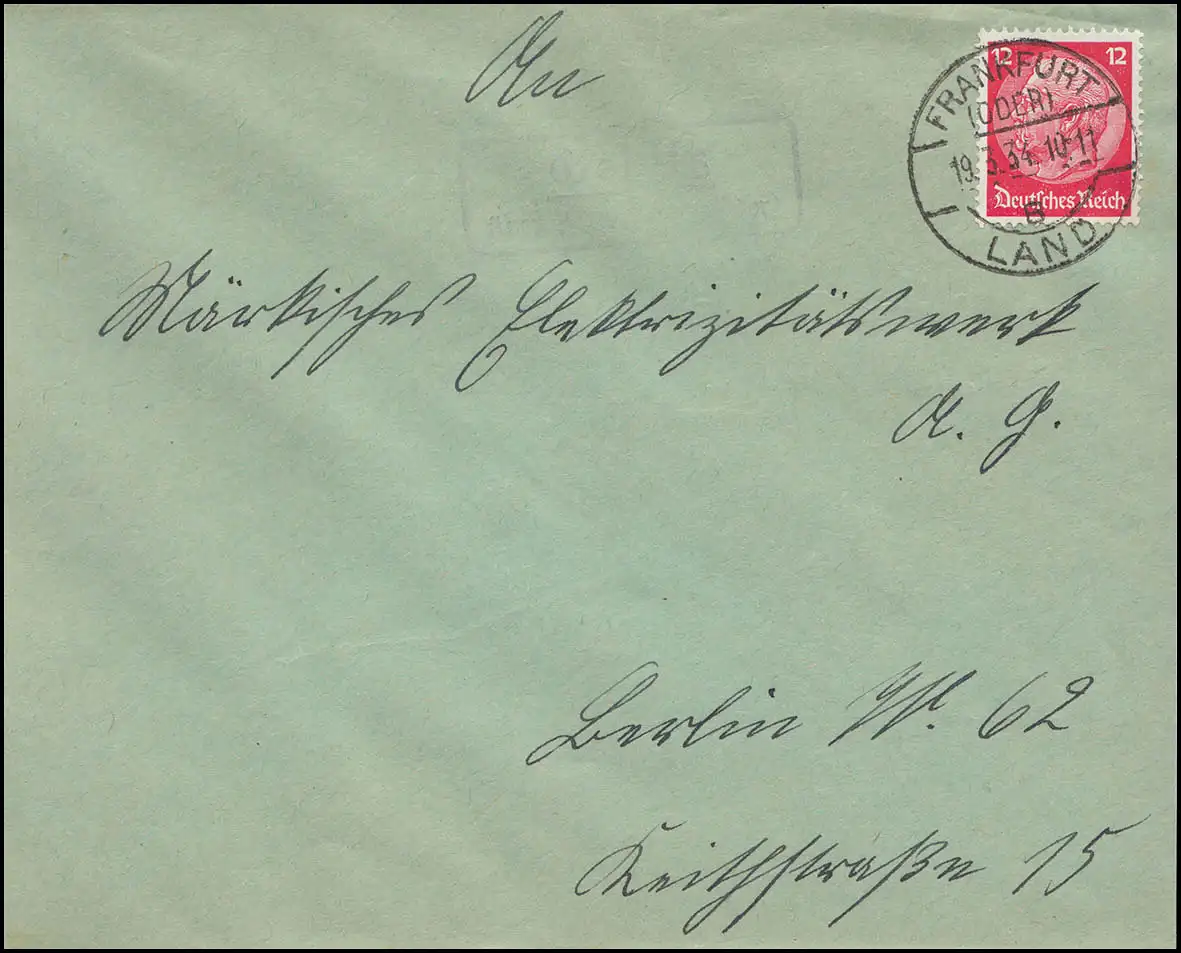 An
12 12
FRANKFURT
(ODER)
19.3.34. 10-11
Deutsches Reich
LAND
Märkisches Elektrizitätswerk
A. G.
Berlin W. 62
Keithstraße 15